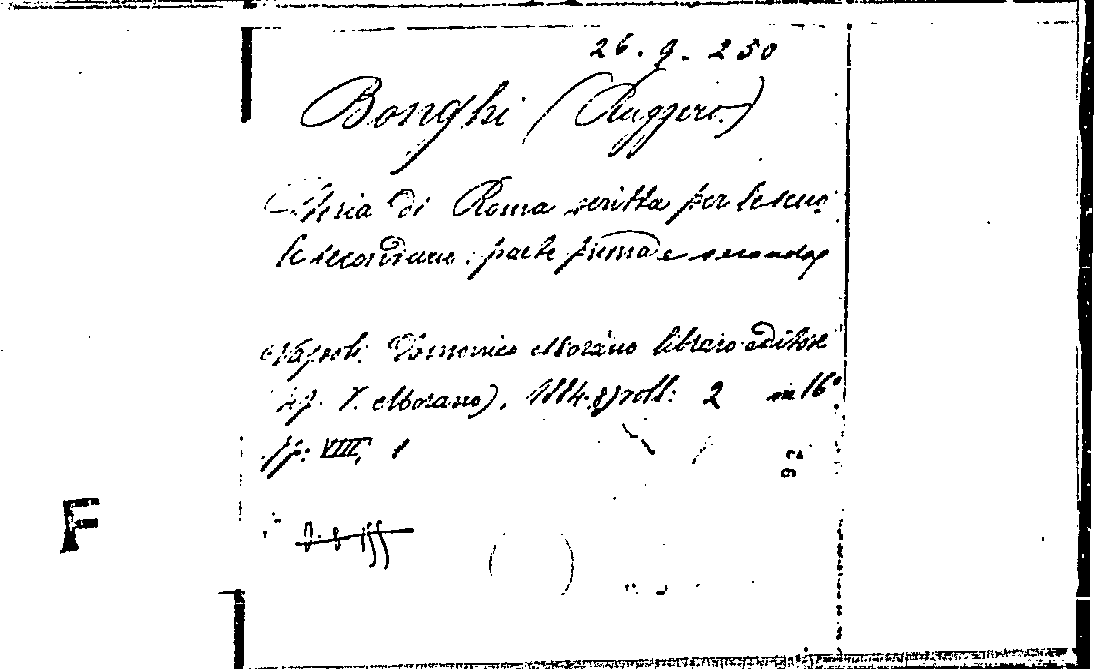 26. 9. 250
Bonghi (Ruggero)
Storia di Roma scritta per le scuo
le secondarie: parte prima e seconda
Napoli, Domenico Morano libraio-editore
(tip. V. Morano), 1884. voll: 2 in 16°
pp: VIII,
F